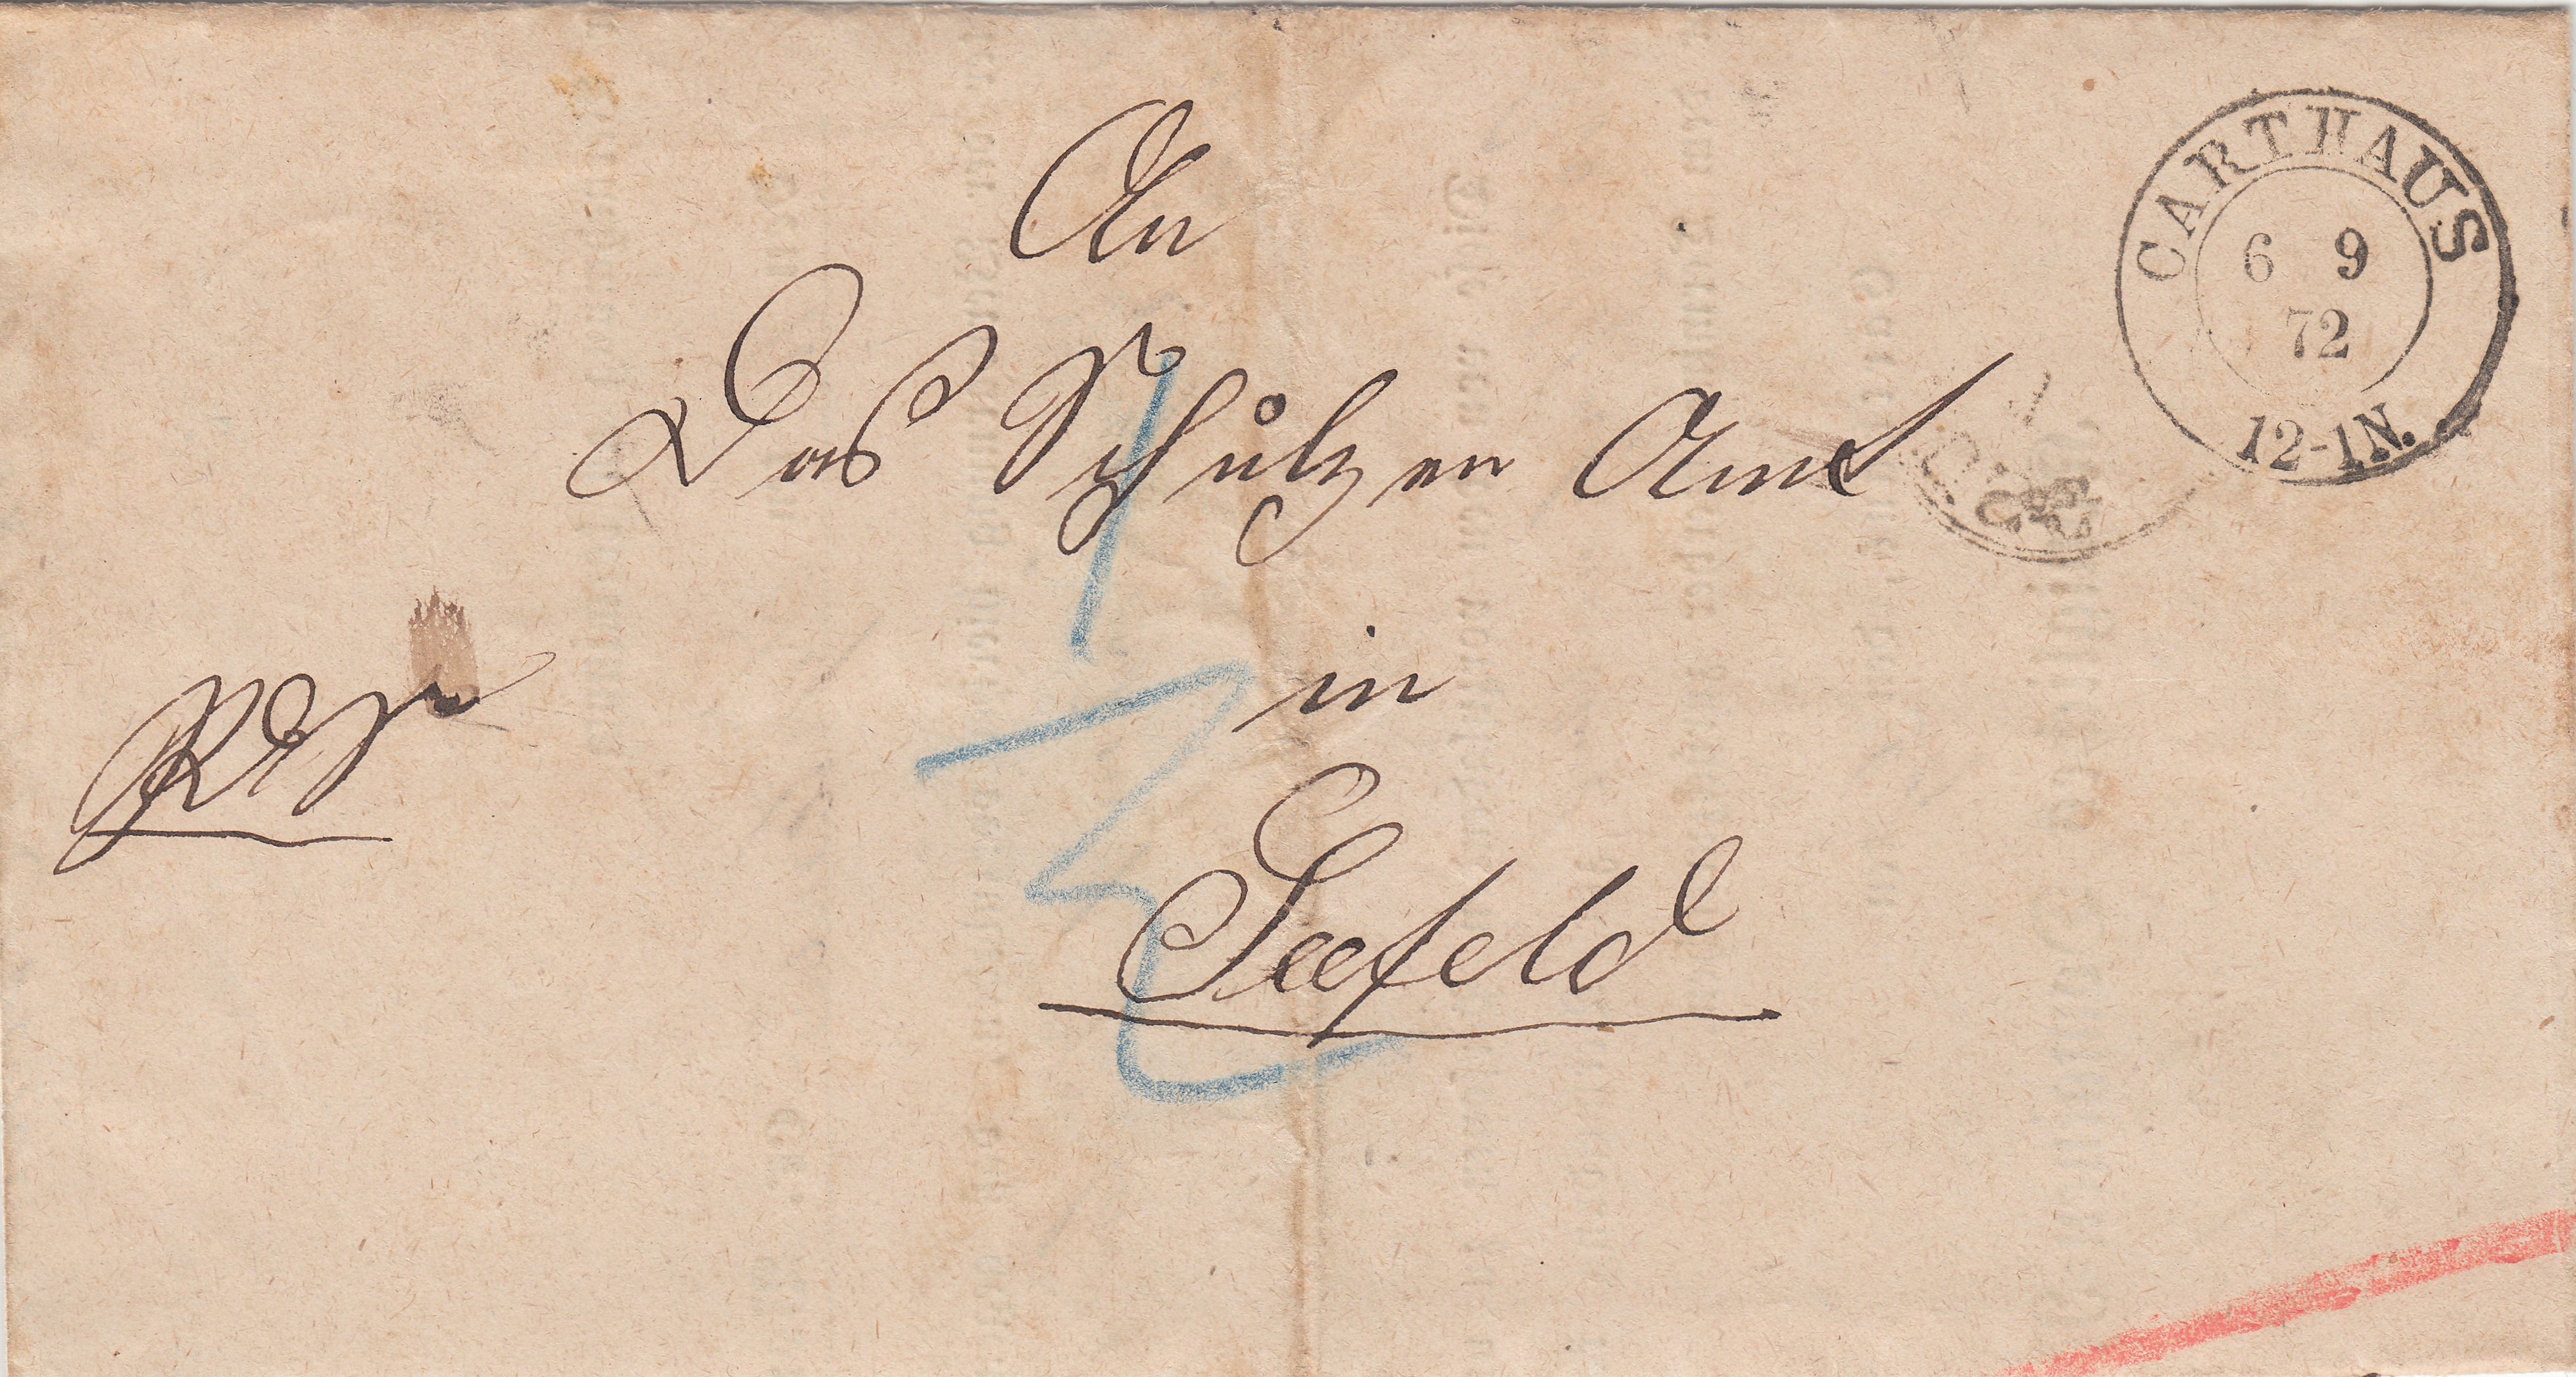 CARTHAUS
6 9
72
12-1N.
An
Das Schulzen Amt
in
Seefeld